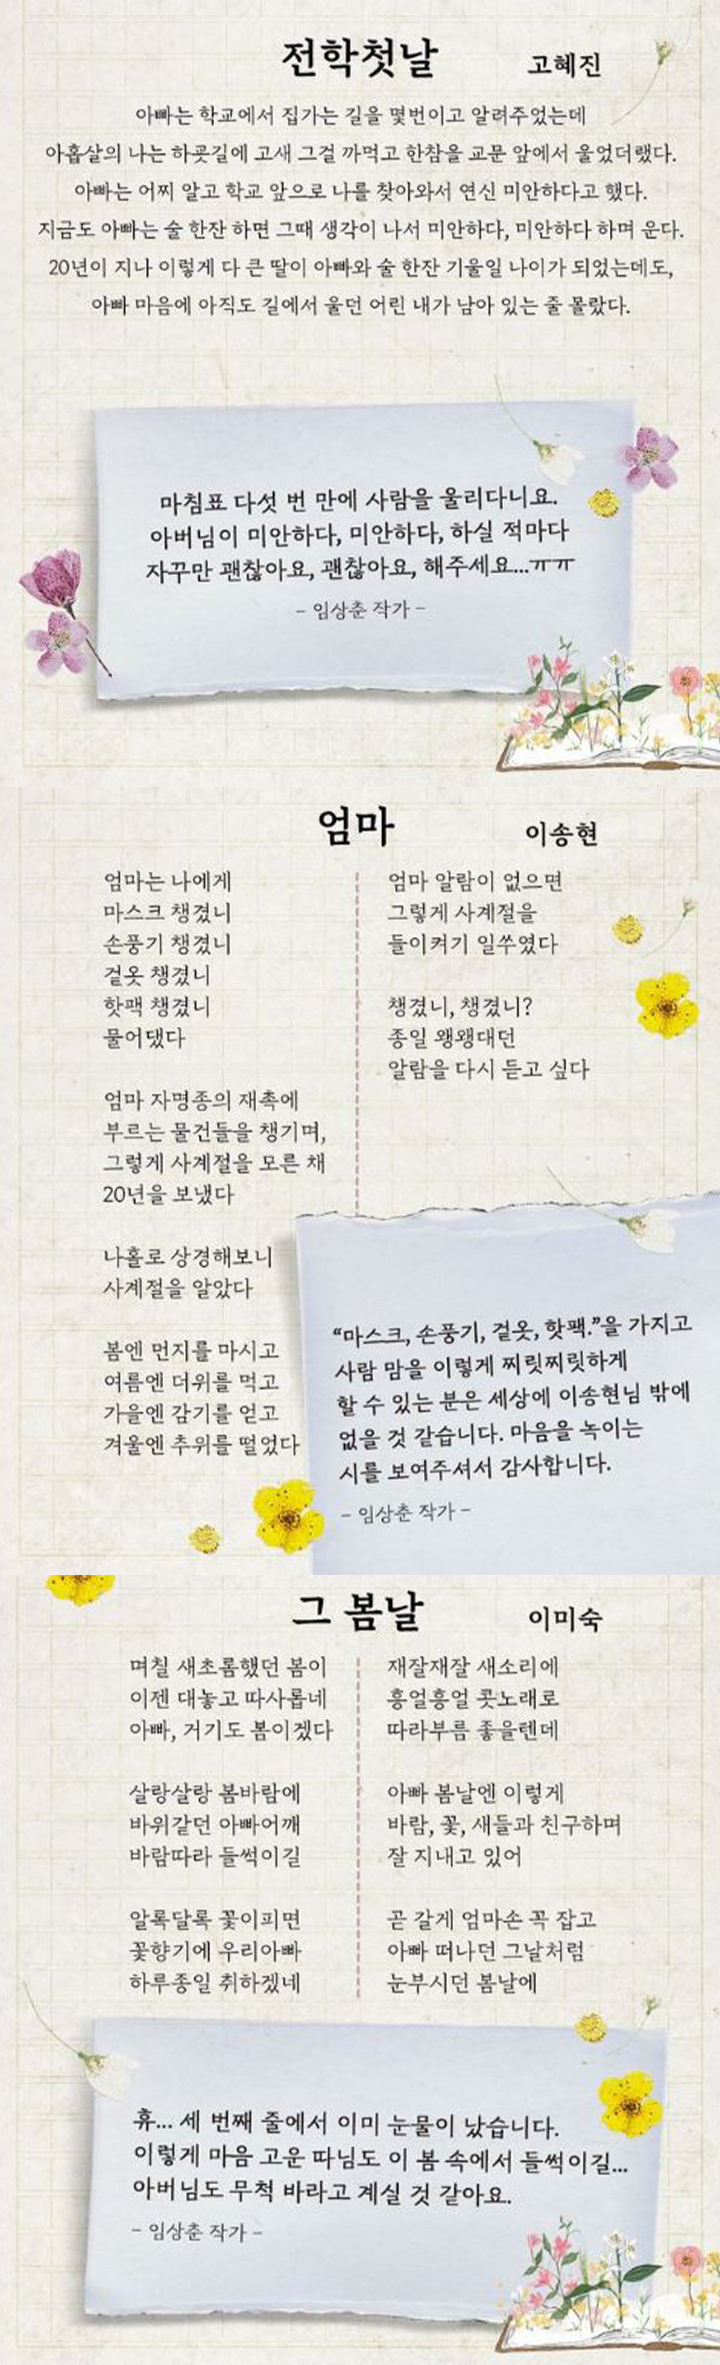 전학첫날
고혜진
아빠는 학교에서 집가는 길을 몇번이고 알려주었는데
아홉살의 나는 하굣길에 고새 그걸 까먹고 한참을 교문 앞에서 울었더랬다.
아빠는 어찌 알고 학교 앞으로 나를 찾아와서 연신 미안하다고 했다.
지금도 아빠는 술 한잔 하면 그때 생각이 나서 미안하다, 미안하다 하며 운다.
20년이 지나 이렇게 다 큰 딸이 아빠와 술 한잔 기울일 나이가 되었는데도,
아빠 마음에 아직도 길에서 울던 어린 내가 남아 있는 줄 몰랐다.
마침표 다섯 번 만에 사람을 울리다니요.
아버님이 미안하다, 미안하다, 하실 적마다
자꾸만 괜찮아요, 괜찮아요, 해주세요...ㅠㅠ
– 임상춘 작가 –
엄마
이송현
엄마는 나에게
마스크 챙겼니
손풍기 챙겼니
겉옷 챙겼니
핫팩 챙겼니
물어댔다
엄마 자명종의 재촉에
부르는 물건들을 챙기며,
그렇게 사계절을 모른 채
20년을 보냈다
나홀로 상경해보니
사계절을 알았다
봄엔 먼지를 마시고
여름엔 더위를 먹고
가을엔 감기를 얻고
겨울엔 추위를 떨었다
엄마 알람이 없으면
그렇게 사계절을
들이켜기 일쑤였다
챙겼니, 챙겼니?
종일 왱왱대던
알람을 다시 듣고 싶다
“마스크, 손풍기, 겉옷, 핫팩.”을 가지고
사람 맘을 이렇게 찌릿찌릿하게
할 수 있는 분은 세상에 이송현님 밖에
없을 것 같습니다. 마음을 녹이는
시를 보여주셔서 감사합니다.
– 임상춘 작가 –
그 봄날
이미숙
며칠 새초롬했던 봄이
이젠 대놓고 따사롭네
아빠, 거기도 봄이겠다
살랑살랑 봄바람에
바위같던 아빠어깨
바람따라 들썩이길
알록달록 꽃이피면
꽃향기에 우리아빠
하루종일 취하겠네
재잘재잘 새소리에
흥얼흥얼 콧노래로
따라부름 좋을텐데
아빠 봄날엔 이렇게
바람, 꽃, 새들과 친구하며
잘 지내고 있어
곧 갈게 엄마손 꼭 잡고
아빠 떠나던 그날처럼
눈부시던 봄날에
휴... 세 번째 줄에서 이미 눈물이 났습니다.
이렇게 마음 고운 따님도 이 봄 속에서 들썩이길...
아버님도 무척 바라고 계실 것 같아요.
– 임상춘 작가 –